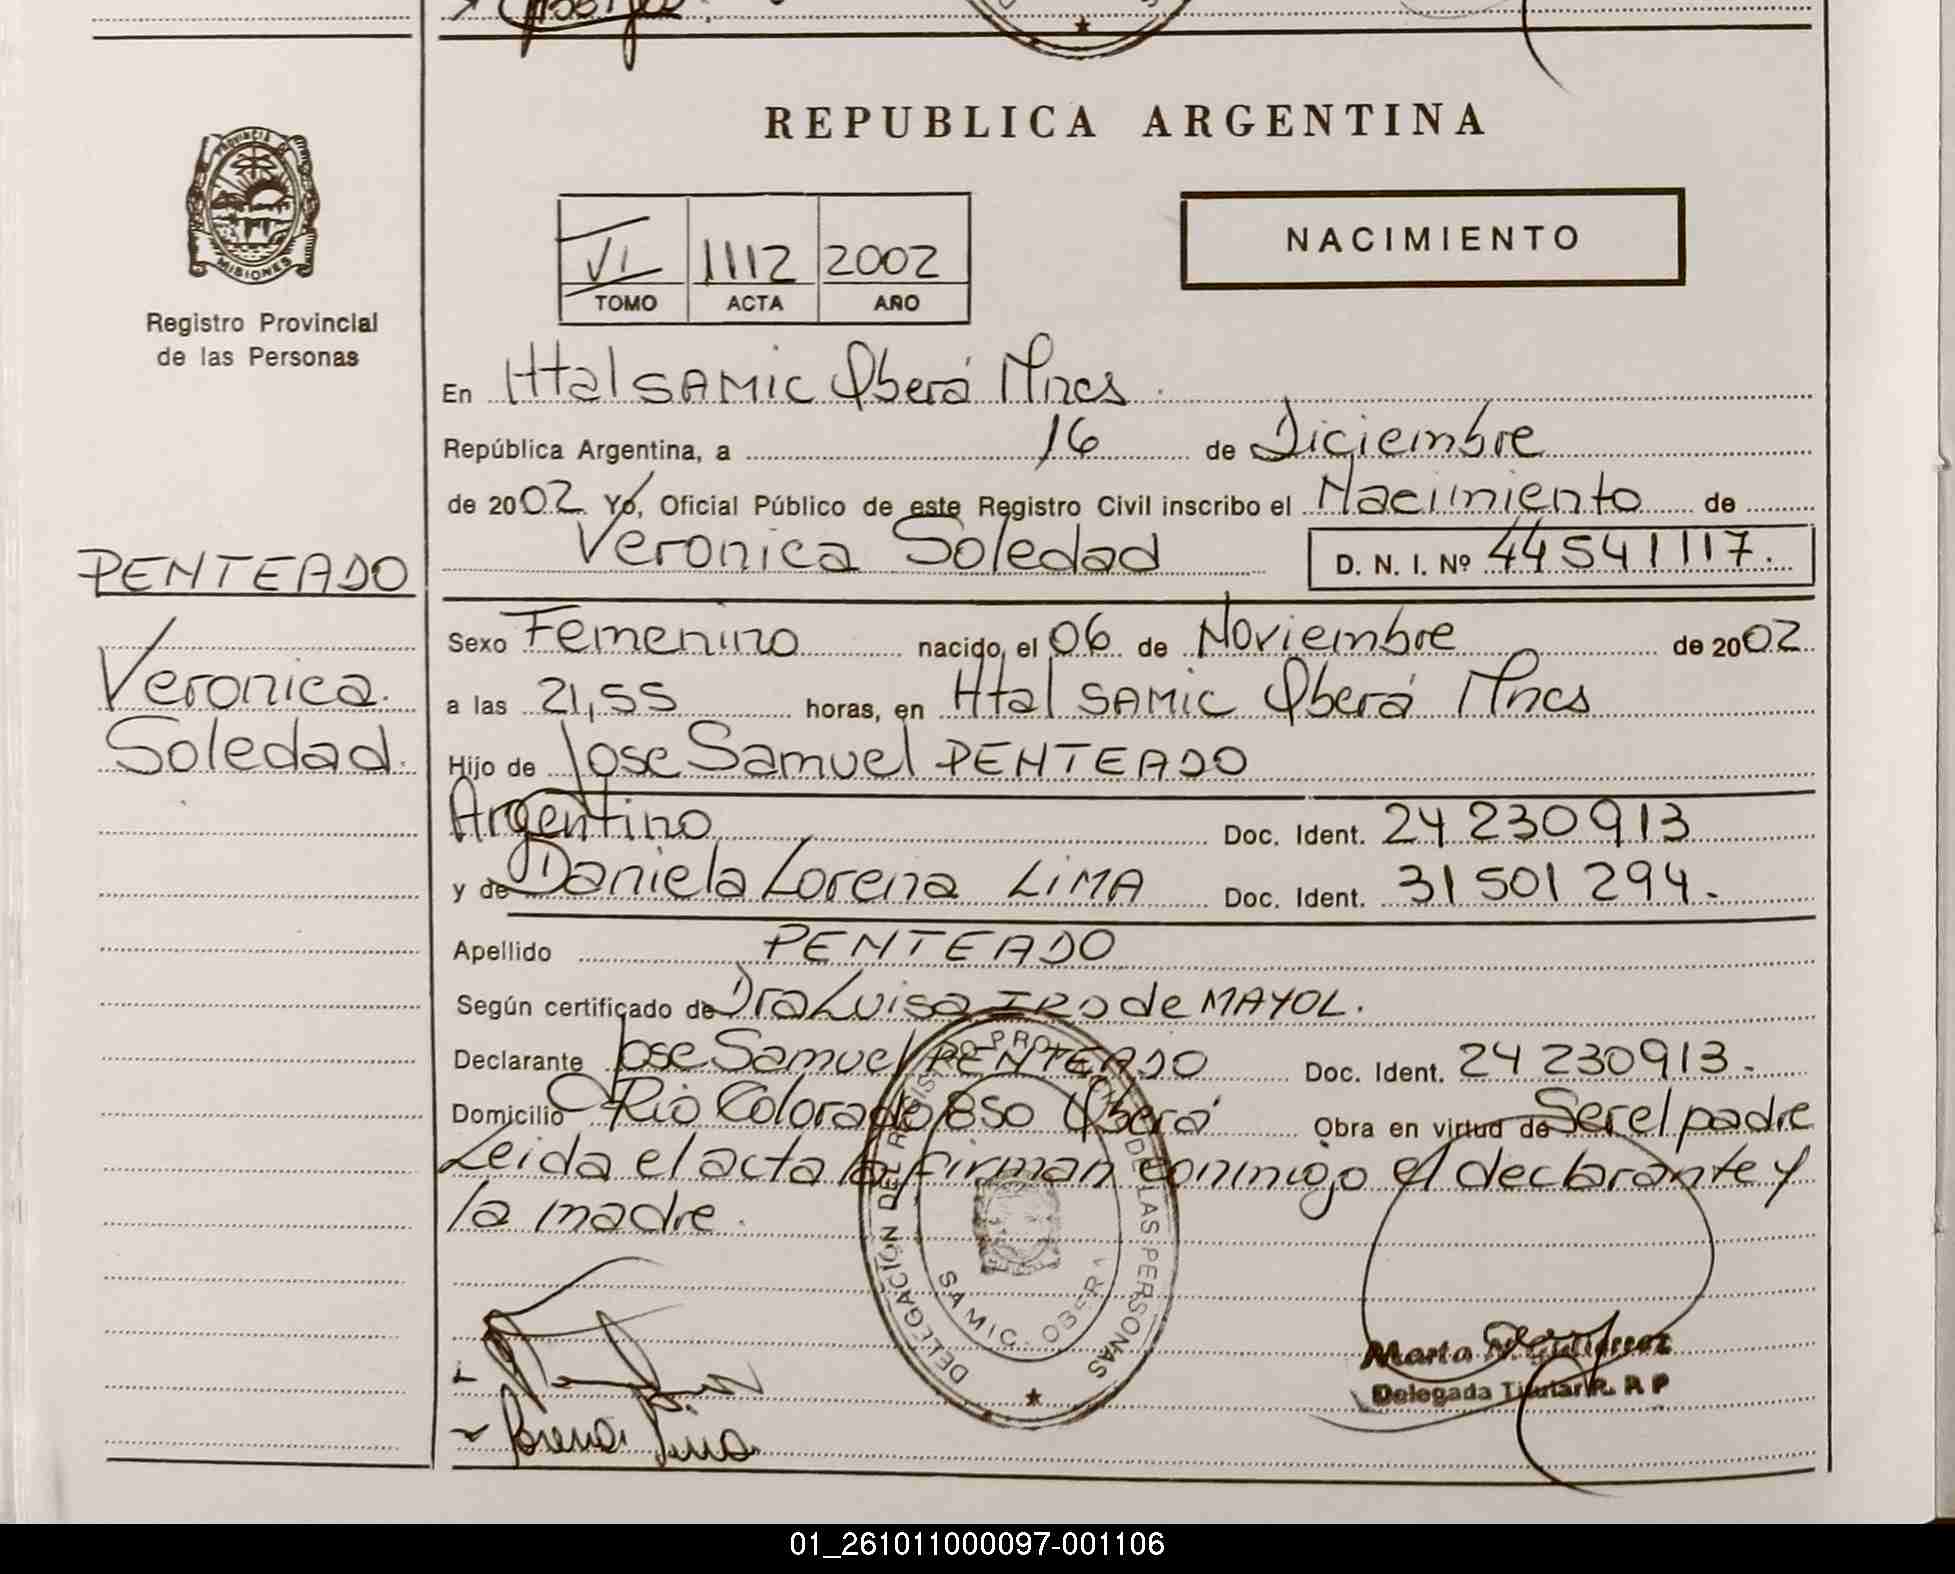 PROVINCIA DE
MISIONES
Registro Provincial
de las Personas
PENTEADO
Veronica
Soledad.
REPUBLICA ARGENTINA
VI 1112 2002
TOMO ACTA AÑO
NACIMIENTO
En Htal SAMIC Oberá Mnes.
República Argentina, a 16 de Diciembre
de 2002 Yo, Oficial Público de este Registro Civil inscribo el Nacimiento de
Veronica Soledad D. N. I. Nº 44541117.
Sexo Femenino nacido el 06 de Noviembre de 2002
a las 21,55 horas, en Htal SAMIC Oberá Mnes
Hijo de Jose Samuel PENTEADO
Argentino Doc. Ident. 24 230913
y de Daniela Lorena LIMA Doc. Ident. 31 501 294.
Apellido PENTEADO
Según certificado de Dra Luisa de MAYOL.
Declarante Jose Samuel PENTEADO Doc. Ident. 24 230913.
Domicilio Rio Colorado 850 Oberá Obra en virtud de Ser el padre
Leida el acta la firman conmigo el declarante y
la madre.
DELEGACIÓN DEL REGISTRO PROVINCIAL DE LAS PERSONAS
SAMIC. OBERA
Marta N. Gutierrez
Delegada Titular R. P. P
Lorena Lima
01_261011000097-001106